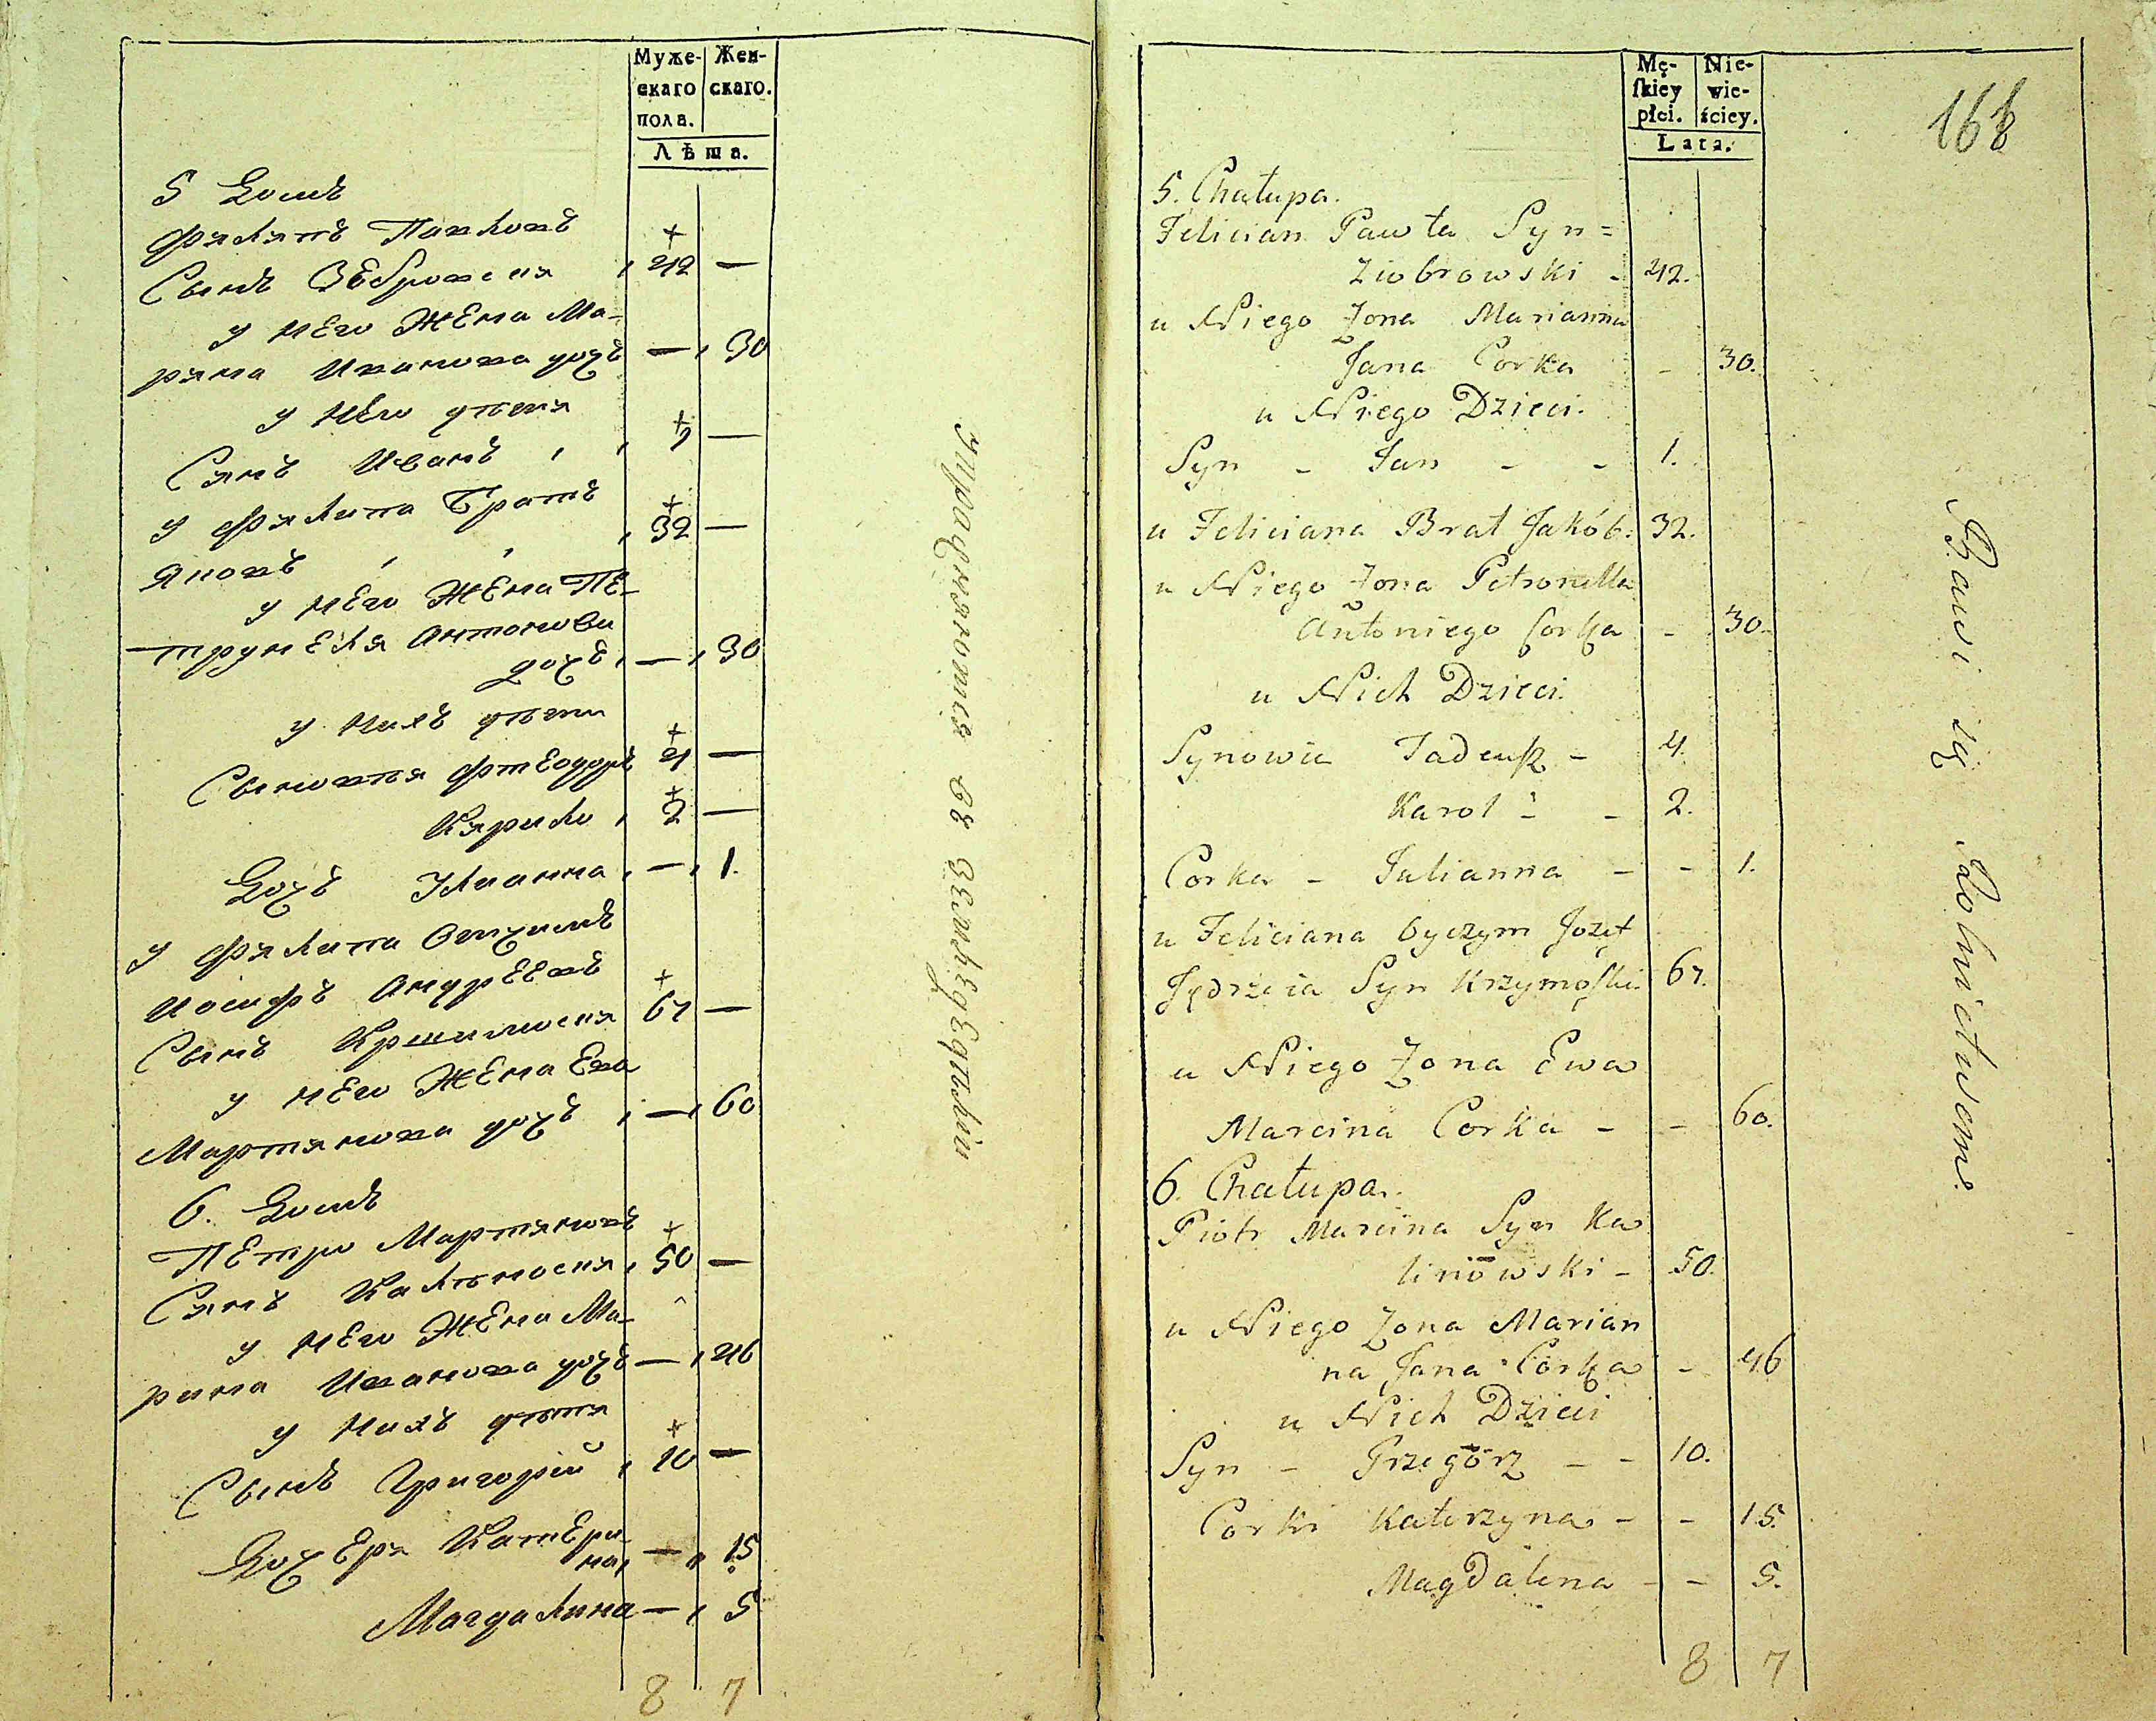 Муже-
скаго
пола.
Жен-
скаго.
Лѣта.
5 Домъ
Филипъ Павловъ
Сынъ Зебровскія 42 —
у него жена Ма-
ряна Иванова дочь — 30
у него дѣтя
Синъ Иванъ 1 —
у Филипа Братъ
Яковъ 32 —
у него жена Пе-
трунеля Антонова
дочь — 30
у нихъ дѣти
Сыновтя Фтеодоръ 4 —
Кярило 2 —
Дочь Юлианна — 1.
у Филипа Отчимъ
Иосифъ Андреевъ
Сынъ Кршимоскія 67 —
у него жена Ева
Мартинова дочь — 60
6. Домъ
Петро Мартяновъ
Синъ Калиноскія 50 —
у него жена Ма-
рина Иванова дочь — 46
у нихъ дѣтя
Сынъ Григорій 10 —
Дочеря Катери-
на — 15
Магдалина — 5
8 7
Упражняются въ Земледеделіи
Mę-
ſkiey
płci.
Nie-
wie-
ściey.
Lata.
168
5. Chałupa.
Felician Pawła Syn =
Ziobrowski - 42.
u Niego Żona Marianna
Jana Corka - 30.
u Niego Dzieci.
Syn - Jan - - 1.
u Feliciana Brat Jakób. 32.
u Niego Żona Petronella
Antoniego Corka - 30.
u Nich Dzieci.
Synowie Tadeuſz - 4.
Karol - - 2.
Corka - Julianna - - 1.
u Feliciana Oyczym Jozef
Jędrzeia Syn Krzymoſki. 67.
u Niego Żona Ewa
Marcina Corka - - 60.
6. Chałupa.
Piotr Marcina Syn Ka
linowski - 50.
u Niego Żona Marian
na Jana Corka - 46
u Nich Dzieci
Syn - Grzegorz - - 10.
Corki Katerzyna - - 15.
Magdalena - - 5.
8 7
Bawi się Rolnictwem.